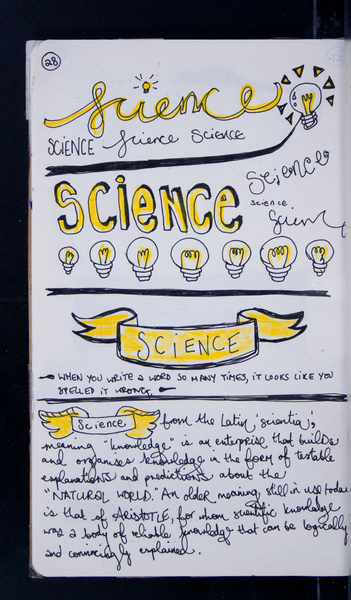 28
science
SCIENCE Science SCIENCE
Science
SCIENCE
science
Scienc
SCIENCE
WHEN YOU WRITE A WORD SO MANY TIMES, IT LOOKS LIKE YOU
SPELLED IT WRONG.
Science from the Latin 'scientia',
meaning "knowledge" is an enterprise that builds
and organises knowledge in the form of testable
explanations and predictions about the
"NATURAL WORLD". An older meaning, still in use today
is that of ARISTOTLE, for whom scientific knowledge
was a body of reliable knowledge that can be logically
and convincingly explained.